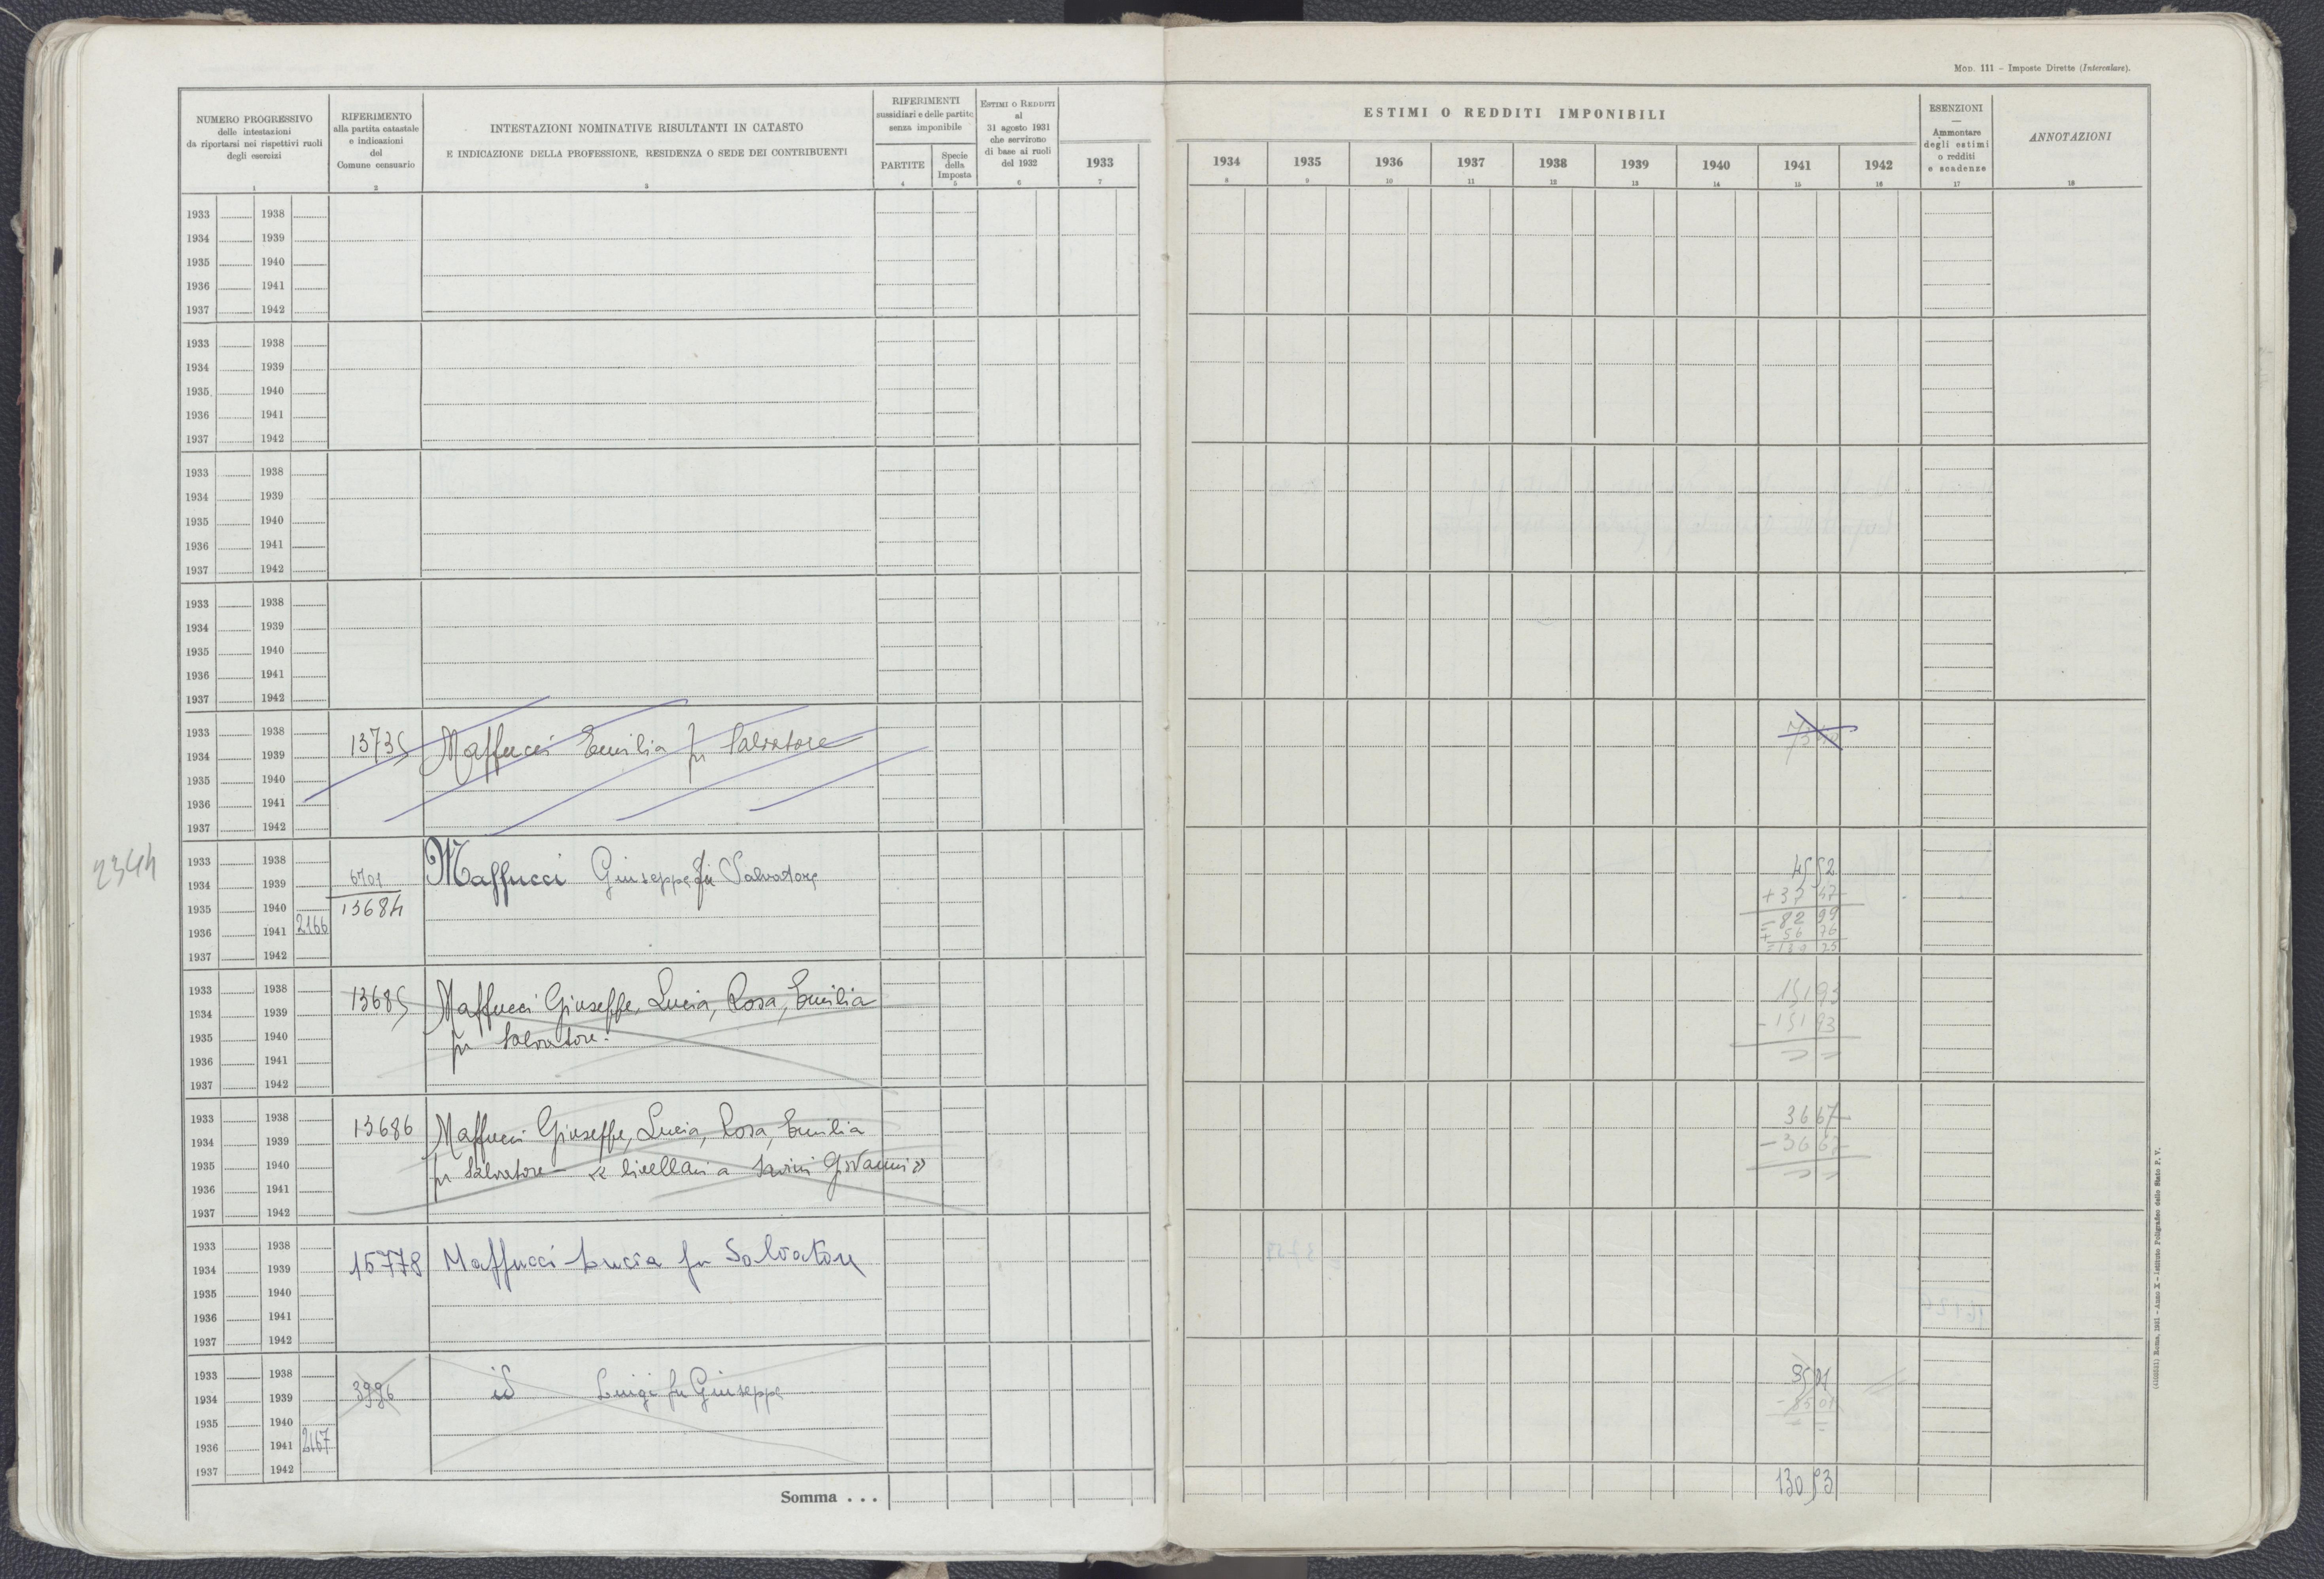 Mod. 111 - Imposte Dirette (Intercalare).
NUMERO PROGRESSIVO
delle intestazioni
da riportarsi nei rispettivi ruoli
degli esercizi
1
RIFERIMENTO
alla partita catastale
e indicazioni
del
Comune censuario
2
INTESTAZIONI NOMINATIVE RISULTANTI IN CATASTO
E INDICAZIONE DELLA PROFESSIONE, RESIDENZA O SEDE DEI CONTRIBUENTI
3
RIFERIMENTI
sussidiari e delle partite
senza imponibile
PARTITE
4
Specie
della
Imposta
5
Estimi o Redditi
al
31 agosto 1931
che servirono
di base ai ruoli
del 1932
6
1933
7
ESTIMI O REDDITI IMPONIBILI
1934 1935 1936 1937 1938 1939 1940 1941 1942
8 9 10 11 12 13 14 15 16
ESENZIONI
—
Ammontare
degli estimi
o redditi
e scadenze
17
ANNOTAZIONI
18
1933 1938
1934 1939
1935 1940
1936 1941
1937 1942
1933 1938
1934 1939
1935 1940
1936 1941
1937 1942
1933 1938
1934 1939
1935 1940
1936 1941
1937 1942
1933 1938
1934 1939
1935 1940
1936 1941
1937 1942
1933 1938
1934 1939
1935 1940
1936 1941
1937 1942
13735 Maffucci Emilia fu Salvatore
1933 1938
1934 1939
1935 1940
1936 1941 2166
1937 1942
2344
6701
13684
Maffucci Giuseppe fu Salvatore
45 52
+ 37 47
= 82 99
+ 56 76
= 139 25
1933 1938
1934 1939
1935 1940
1936 1941
1937 1942
13685 Maffucci Giuseppe, Lucia, Rosa, Emilia
fu Salvatore.
151 93
- 151 93
1933 1938
1934 1939
1935 1940
1936 1941
1937 1942
13686 Maffucci Giuseppe, Lucia, Rosa, Emilia
fu Salvatore — « livellari a Savini Giovanni »
36 67
- 36 67
1933 1938
1934 1939
1935 1940
1936 1941
1937 1942
15778 Maffucci Lucia fu Salvatore
1933 1938
1934 1939
1935 1940
1936 1941 2167
1937 1942
3996 id Luigi fu Giuseppe
85 01
- 85 01
Somma . . .
130 53
(4100581) Roma, 1931 - Anno X - Istituto Poligrafico dello Stato P. V.